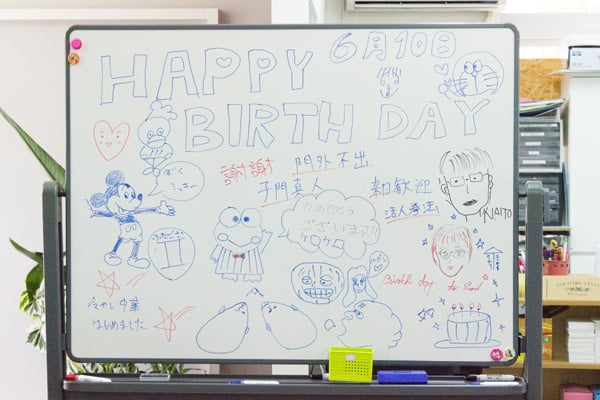 6月10日
HAPPY
BIRTH DAY
謝謝
門外不出
子門真人
熱烈歓迎
活人拳法
ぼく
おめでとう
ございます!!
ケロケロ
Birth day. for
冷やし中華
はじめました